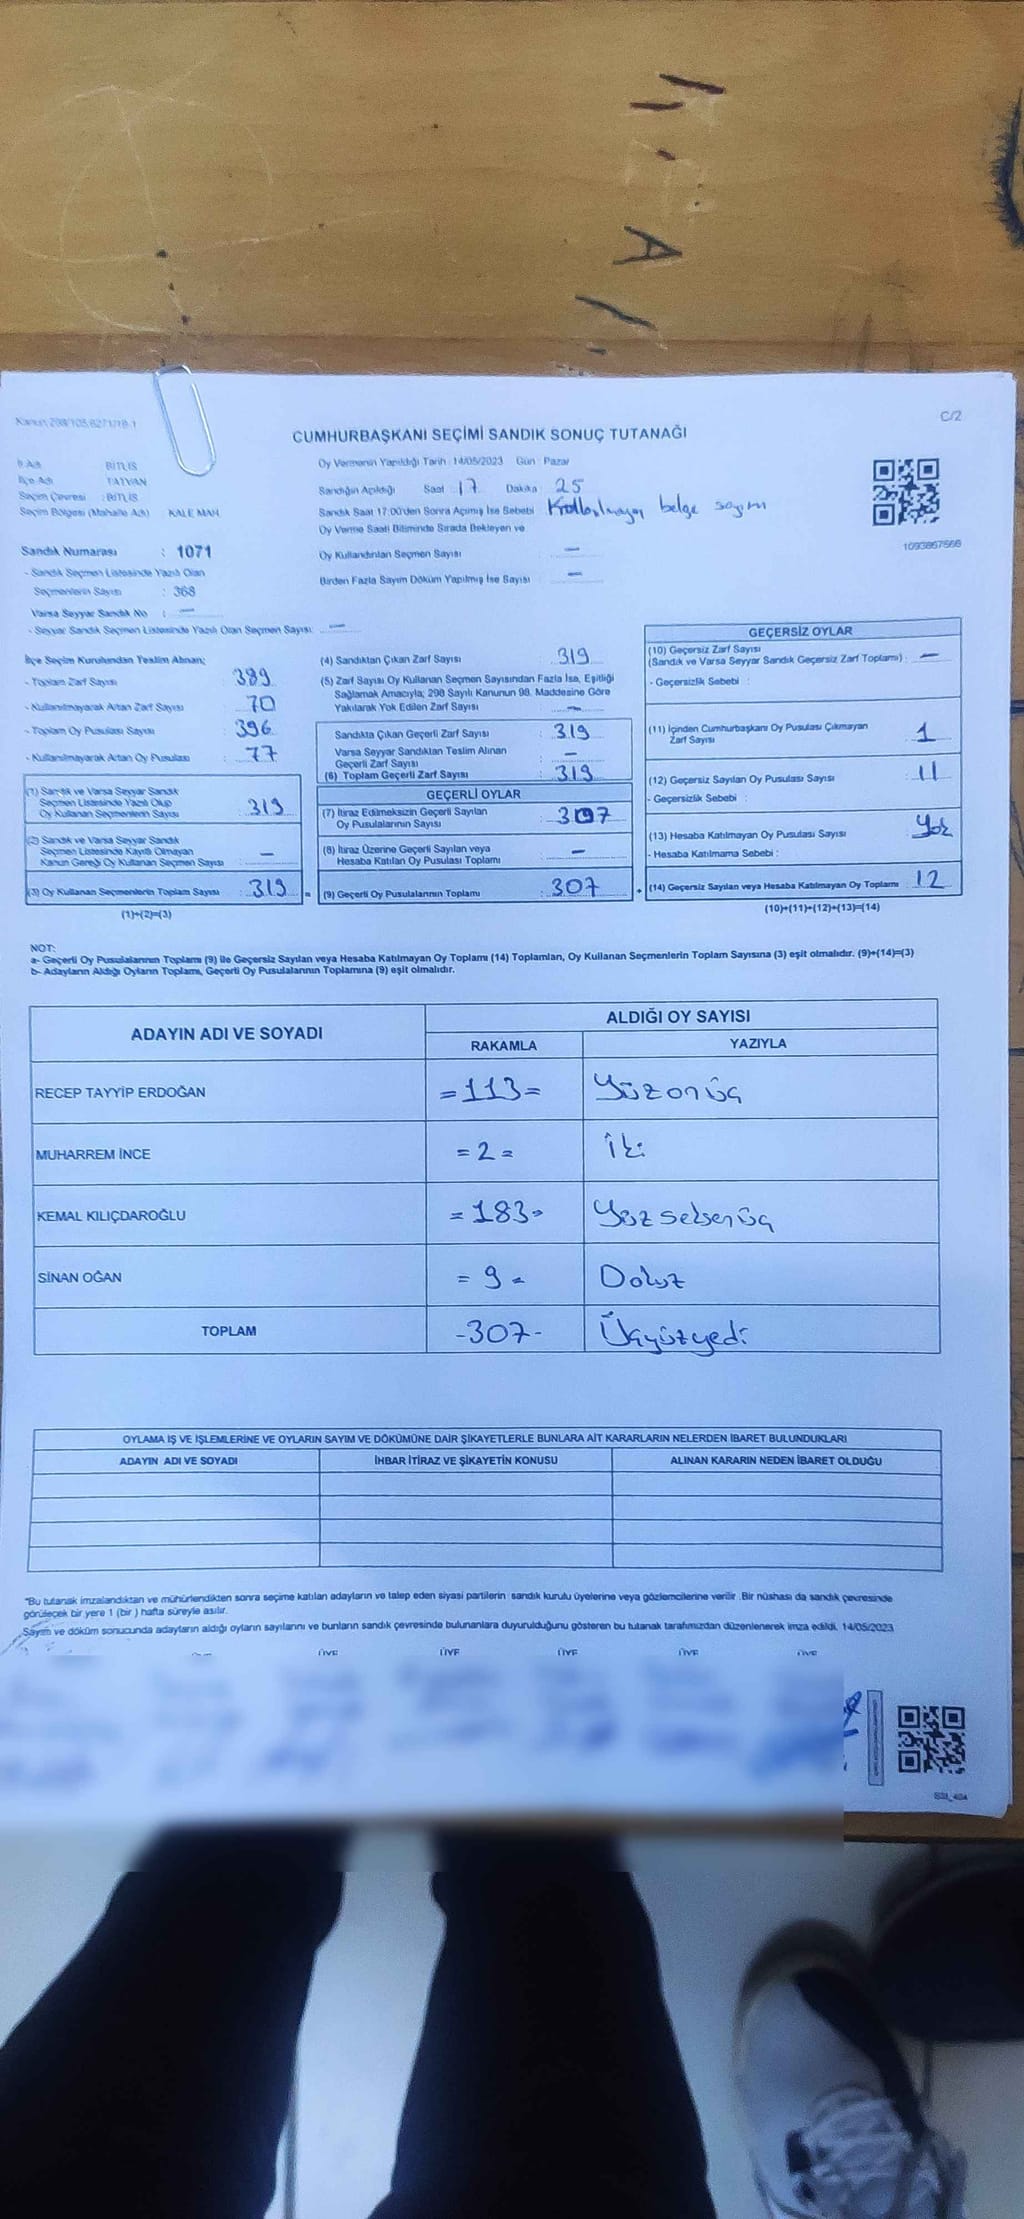 Kanun 298/105,6271/18-1
C/2
CUMHURBAŞKANI SEÇİMİ SANDIK SONUÇ TUTANAĞI
İl Adı BİTLİS
İlçe Adı TATVAN
Seçim Çevresi : BİTLİS
Seçim Bölgesi (Mahalle Adı) KALE MAH.
Sandık Numarası : 1071
- Sandık Seçmen Listesinde Yazılı Olan
Seçmenlerin Sayısı : 368
Varsa Seyyar Sandık No : —
- Seyyar Sandık Seçmen Listesinde Yazılı Olan Seçmen Sayısı: —
Oy Vermenin Yapıldığı Tarih : 14/05/2023 Gün : Pazar
Sandığın Açıldığı Saat 17 Dakika 25
Sandık Saat 17:00'den Sonra Açımış İse Sebebi Kullanılmayan belge sayım
Oy Verme Saati Bitiminde Sırada Bekleyen ve
Oy Kullandırılan Seçmen Sayısı —
Birden Fazla Sayım Döküm Yapılmış İse Sayısı —
1093867566
İlçe Seçim Kurulundan Teslim Alınan;
- Toplam Zarf Sayısı : 389
- Kullanılmayarak Artan Zarf Sayısı : 70
- Toplam Oy Pusulası Sayısı : 396
- Kullanılmayarak Artan Oy Pusulası : 77
(1) Sandık ve Varsa Seyyar Sandık
Seçmen Listesinde Yazılı Olup
Oy Kullanan Seçmenlerin Sayısı : 319
(2) Sandık ve Varsa Seyyar Sandık
Seçmen Listesinde Kayıtlı Olmayan
Kanun Gereği Oy Kullanan Seçmen Sayısı : —
(3) Oy Kullanan Seçmenlerin Toplam Sayısı : 319 =
(1)+(2)=(3)
(4) Sandıktan Çıkan Zarf Sayısı : 319
(5) Zarf Sayısı Oy Kullanan Seçmen Sayısından Fazla İse, Eşitliği
Sağlamak Amacıyla; 298 Sayılı Kanunun 98. Maddesine Göre
Yakılarak Yok Edilen Zarf Sayısı : —
Sandıkta Çıkan Geçerli Zarf Sayısı : 319
Varsa Seyyar Sandıktan Teslim Alınan
Geçerli Zarf Sayısı : —
(6) Toplam Geçerli Zarf Sayısı : 319
GEÇERLİ OYLAR
(7) İtiraz Edilmeksizin Geçerli Sayılan
Oy Pusulalarının Sayısı : 307
(8) İtiraz Üzerine Geçerli Sayılan veya
Hesaba Katılan Oy Pusulası Toplamı : —
(9) Geçerli Oy Pusulalarının Toplamı : 307 +
GEÇERSİZ OYLAR
(10) Geçersiz Zarf Sayısı
(Sandık ve Varsa Seyyar Sandık Geçersiz Zarf Toplamı) : —
- Geçersizlik Sebebi :
(11) İçinden Cumhurbaşkanı Oy Pusulası Çıkmayan
Zarf Sayısı : 1
(12) Geçersiz Sayılan Oy Pusulası Sayısı : 11
- Geçersizlik Sebebi :
(13) Hesaba Katılmayan Oy Pusulası Sayısı : Yok
- Hesaba Katılmama Sebebi :
(14) Geçersiz Sayılan veya Hesaba Katılmayan Oy Toplamı : 12
(10)+(11)+(12)+(13)=(14)
NOT:
a- Geçerli Oy Pusulalarının Toplamı (9) ile Geçersiz Sayılan veya Hesaba Katılmayan Oy Toplamı (14) Toplamları, Oy Kullanan Seçmenlerin Toplam Sayısına (3) eşit olmalıdır. (9)+(14)=(3)
b- Adayların Aldığı Oyların Toplamı, Geçerli Oy Pusulalarının Toplamına (9) eşit olmalıdır.
ADAYIN ADI VE SOYADI ALDIĞI OY SAYISI
RAKAMLA YAZIYLA
RECEP TAYYİP ERDOĞAN =113= Yüzonüç
MUHARREM İNCE =2= İki
KEMAL KILIÇDAROĞLU =183= Yüzseksenüç
SİNAN OĞAN =9= Dokuz
TOPLAM -307- Üçyüzyedi
OYLAMA İŞ VE İŞLEMLERİNE VE OYLARIN SAYIM VE DÖKÜMÜNE DAİR ŞİKAYETLERLE BUNLARA AİT KARARLARIN NELERDEN İBARET BULUNDUKLARI
ADAYIN ADI VE SOYADI İHBAR İTİRAZ VE ŞİKAYETİN KONUSU ALINAN KARARIN NEDEN İBARET OLDUĞU
*Bu tutanak imzalandıktan ve mühürlendikten sonra seçime katılan adayların ve talep eden siyasi partilerin sandık kurulu üyelerine veya gözlemcilerine verilir. Bir nüshası da sandık çevresinde
görülecek bir yere 1 (bir ) hafta süreyle asılır.
Sayım ve döküm sonucunda adayların aldığı oyların sayılarını ve bunların sandık çevresinde bulunanlara duyurulduğunu gösteren bu tutanak tarafımızdan düzenlenerek imza edildi. 14/05/2023
ÜYE ÜYE ÜYE ÜYE ÜYE